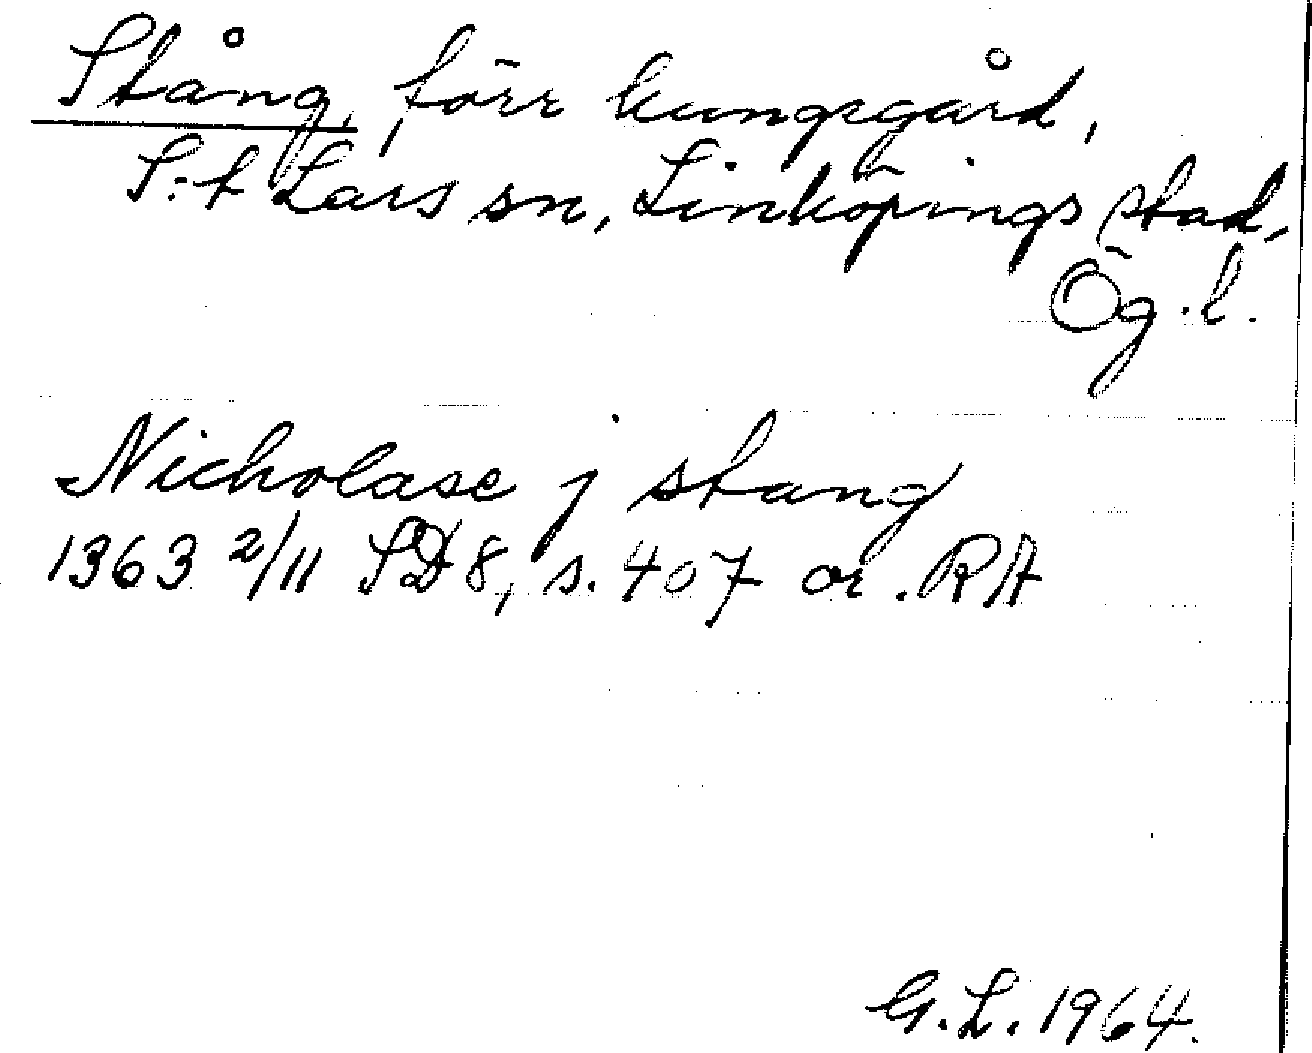 Stång, förr kungsgård,
S:t Lars sn, Linköpings stad,
Ög. l.
Nicholase j stang
1363 2/11 SD 8, s. 407 or. RA
G.L. 1964.